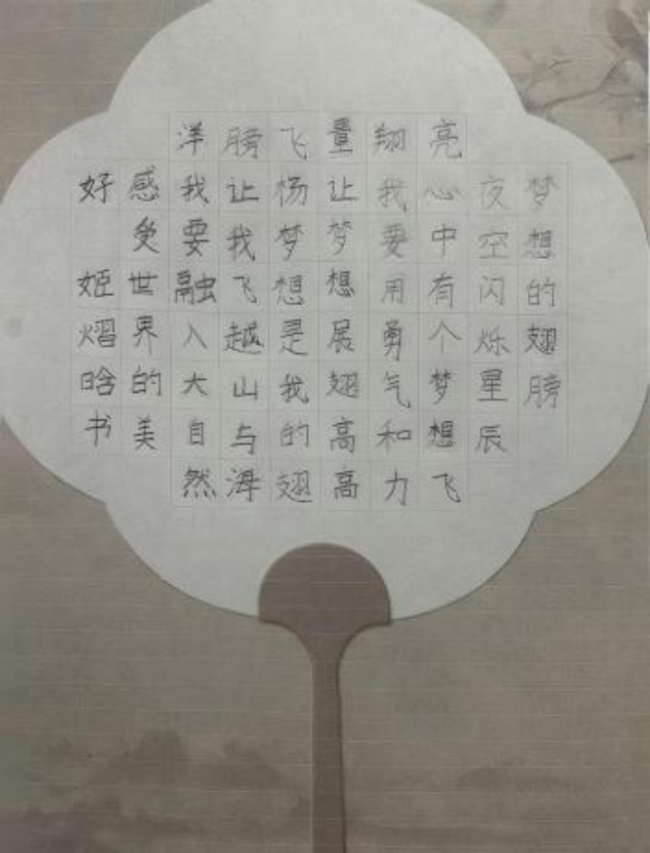 梦想的翅膀
夜空闪烁星辰
亮心中有个梦想飞
翔我要用勇气和力
量让梦想展翅高高
飞杨梦想是我的翅
膀让我飞越山与海
洋我要融入大自然
感受世界的美
好 姬熠晗书